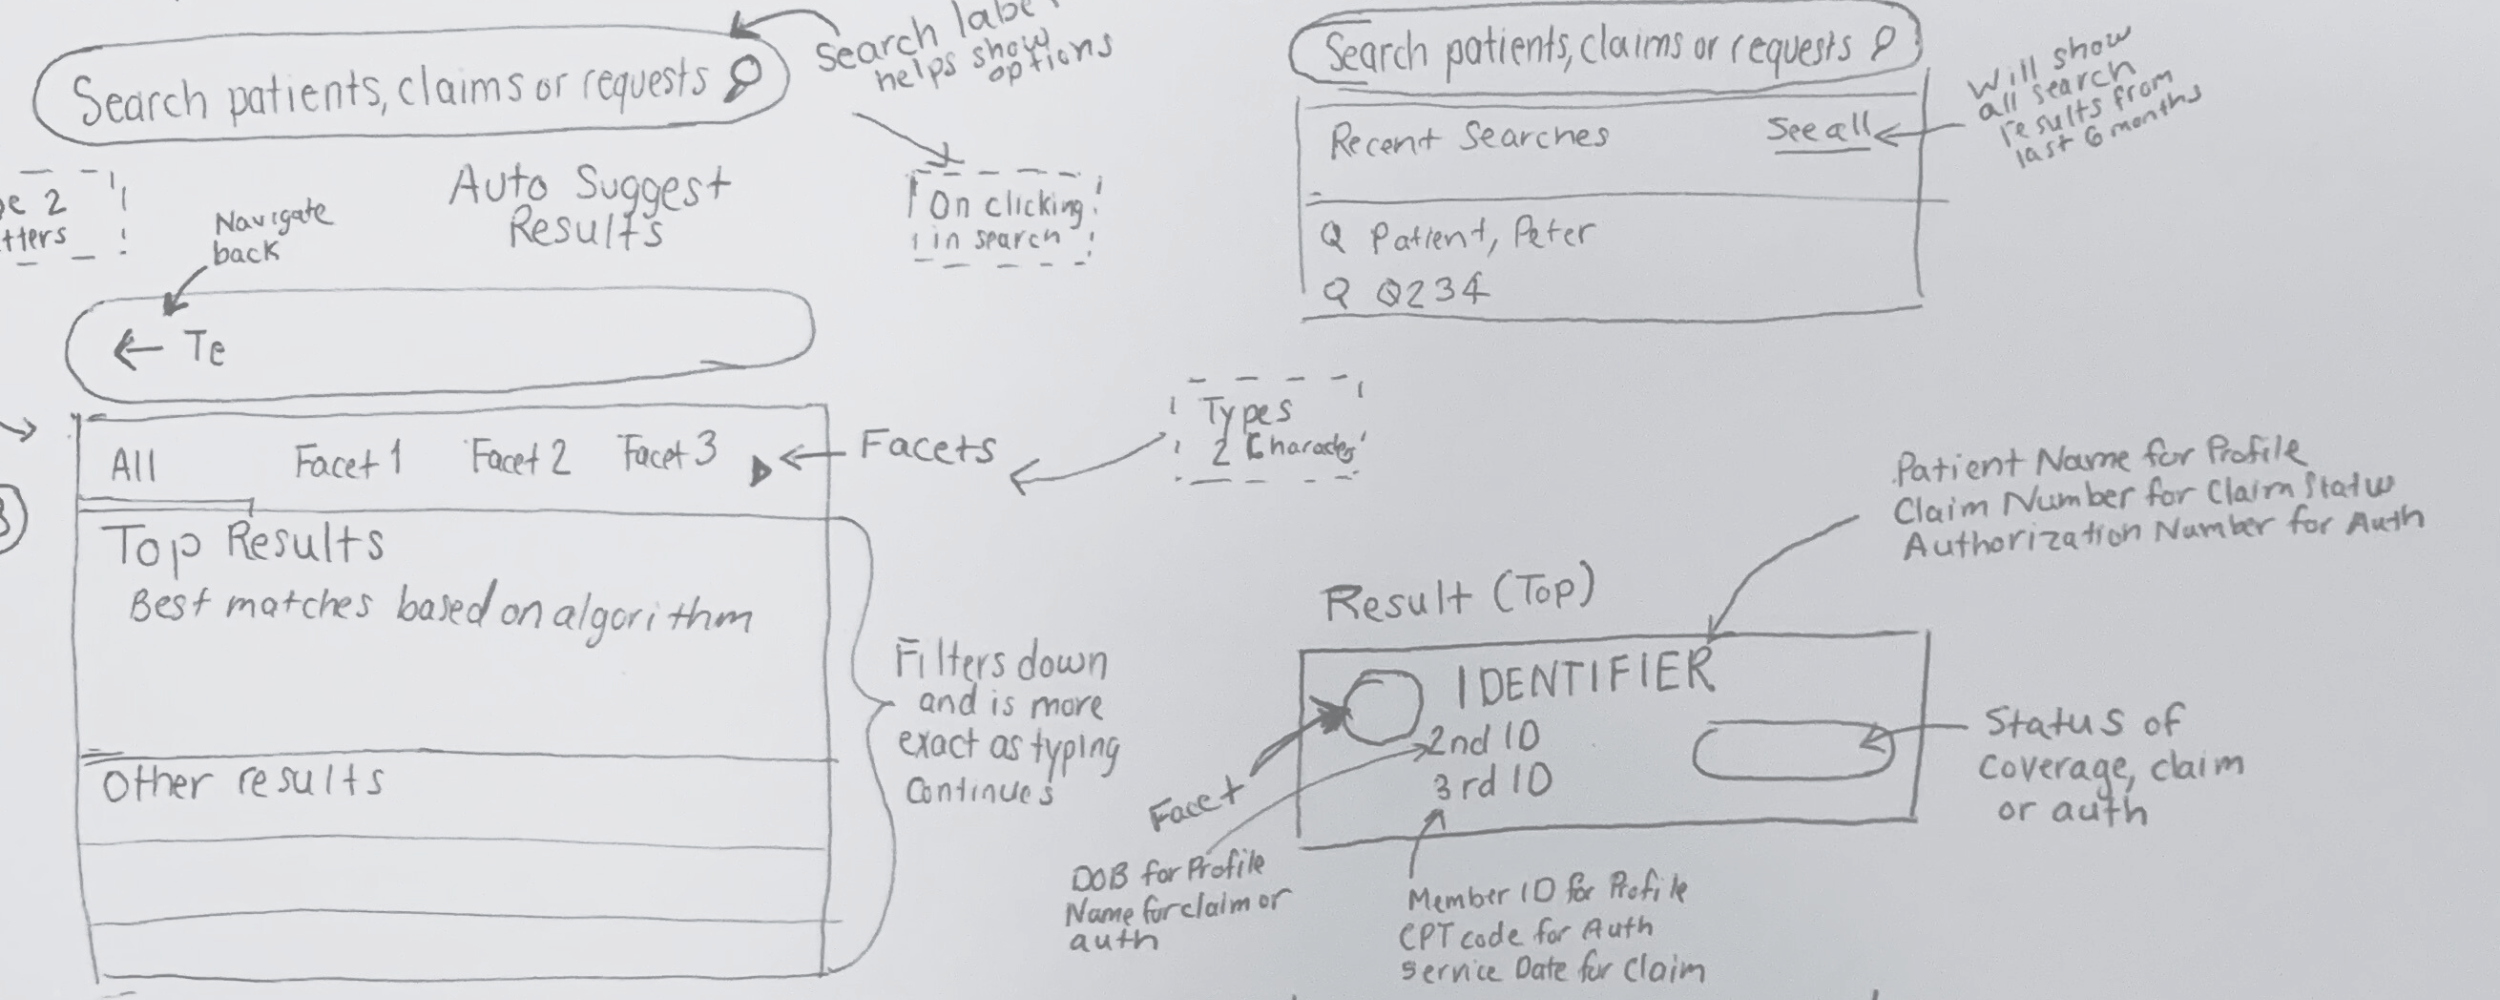 Search patients, claims or requests
Search label
helps show
options
Search patients, claims or requests
Will show
all search
results from
last 6 months
Recent Searches See all
Patient, Peter
Q234
2
tters
Navigate
back
Auto Suggest
Results
On clicking
in search
← Te
Types
2 Character
All Facet 1 Facet 2 Facet 3
Facets
Top Results
Best matches based on algorithm
Filters down
and is more
exact as typing
continues
Other results
Patient Name for Profile
Claim Number for Claim Status
Authorization Number for Auth
Result (Top)
IDENTIFIER
2nd ID
3rd ID
Facet
Status of
coverage, claim
or auth
DOB for Profile
Name for claim or
auth
Member ID for Profile
CPT code for Auth
Service Date for Claim